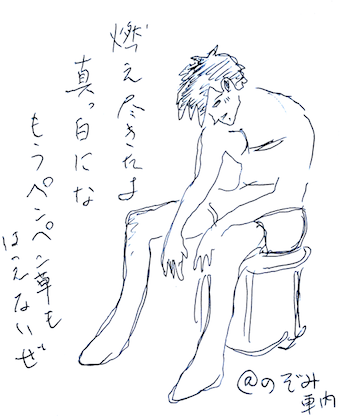 燃え尽きたよ
真っ白にな
もうペンペン草も
はえないぜ
@のぞみ
車内